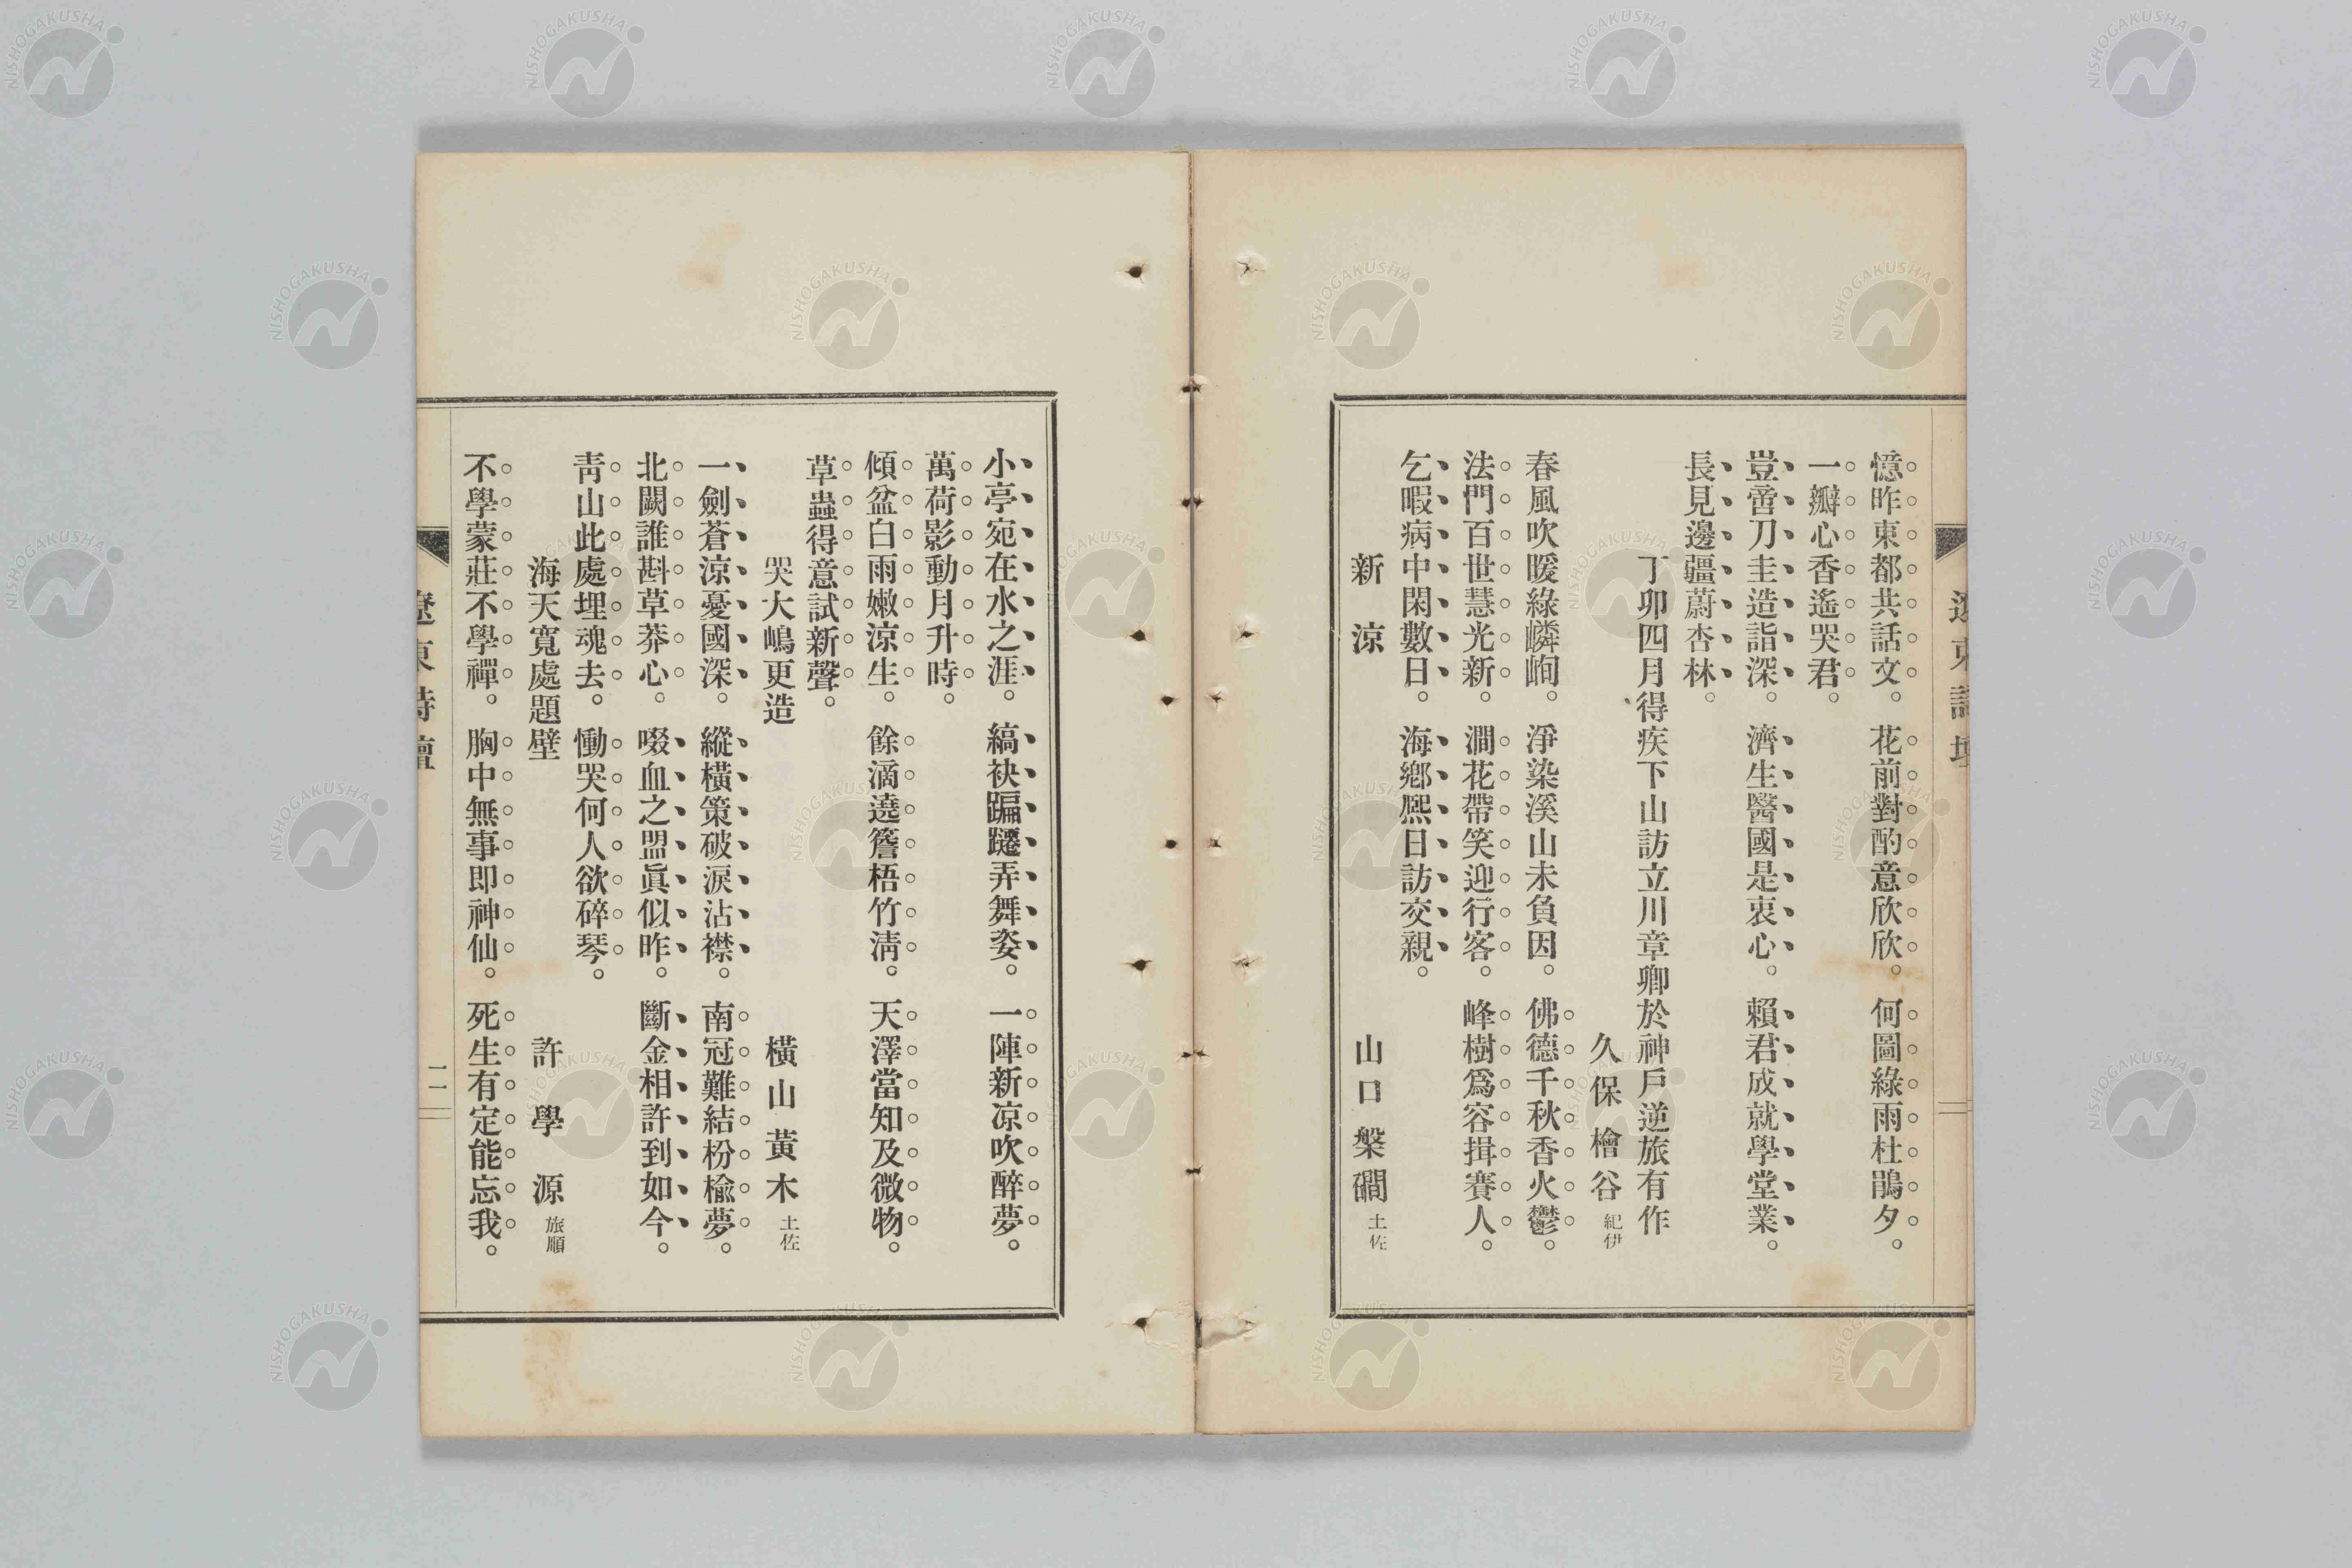 遼東詩壇
憶昨東都共話文。花前對酌意欣欣。何圖綠雨杜鵑夕。
一瓣心香遙哭君。
豈啻刀圭造詣深。濟生醫國是衷心。賴君成就學堂業。
長見邊疆蔚杏林。
丁卯四月得疾下山訪立川章卿於神戶逆旅有作
久保檜谷 紀伊
春風吹暖綠嶙峋。淨染溪山未負因。佛德千秋香火鬱。
法門百世慧光新。澗花帶笑迎行客。峰樹爲容揖賽人。
乞暇病中閑數日。海鄉熈日訪交親。
新涼 山口槃磵 土佐
小亭宛在水之涯。縞袂蹁躚弄舞姿。一陣新凉吹醉夢。
萬荷影動月升時。
傾盆白雨嫩涼生。餘滴遶簷梧竹淸。天澤當知及微物。
草蟲得意試新聲。
哭大嶋更造 橫山黃木 土佐
一劍蒼涼憂國深。縱橫策破淚沾襟。南冠難結枌楡夢。
北闕誰斟草莽心。啜血之盟眞似昨。斷金相許到如今。
靑山此處埋魂去。慟哭何人欲碎琴。
海天寬處題壁 許學源 旅順
不學蒙莊不學禪。胸中無事即神仙。死生有定能忘我。
遼東詩壇 一一
NISHOGAKUSHA